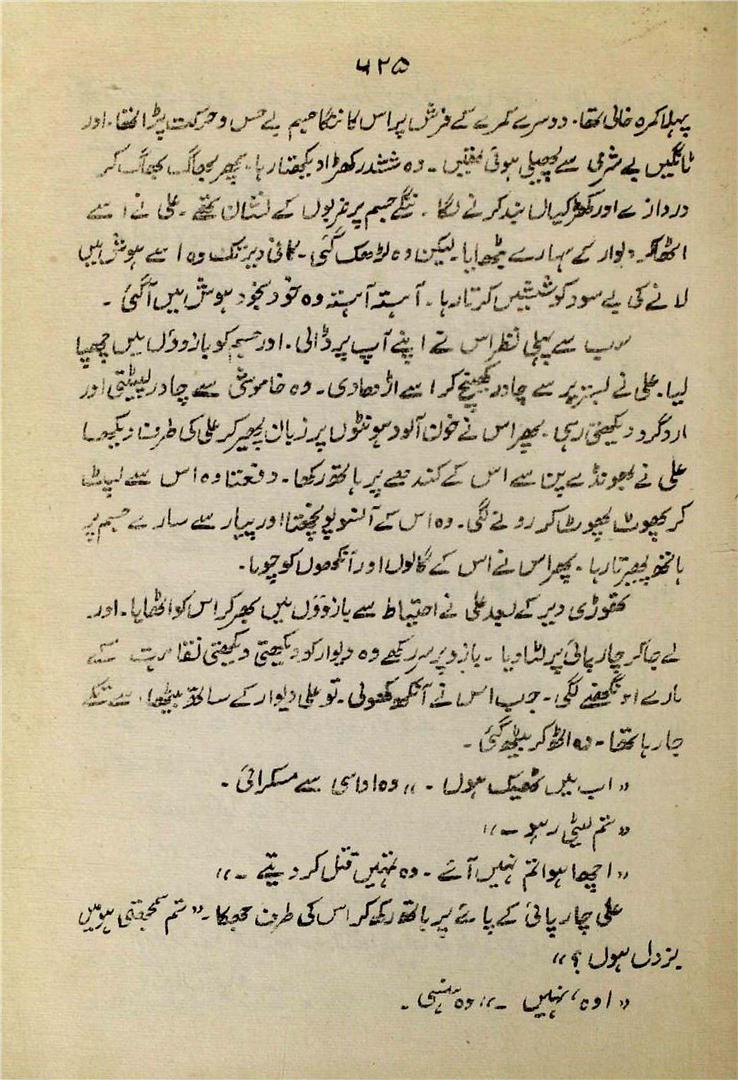 ۶۲۵
پہلا کمرہ خالی تھا۔ دوسرے کمرے کے فرش پر اس کا ننگا جسم بے حس و حرکت پڑا تھا۔ اور
ٹانگیں بے شرمی سے پھیلی ہوئی تھیں۔ وہ ششدر کھڑا دیکھتا رہا۔ پھر بھاگ بھاگ کر
دروازے اور کھڑکیاں بند کرنے لگا۔ ننگے جسم پر ضربوں کے نشان تھے۔ علی نے اسے
اٹھا کر دیوار کے سہارے بٹھایا۔ لیکن وہ لڑھک گئی۔ کافی دیر تک وہ اسے ہوش میں
لانے کی بے سود کوششیں کرتا رہا۔ آہستہ آہستہ وہ خود بخود ہوش میں آ گئی۔
سب سے پہلی نظر اس نے اپنے آپ پر ڈالی۔ اور جسم کو بازوؤں میں چھپا
لیا۔ علی نے بستر پر سے چادر کھینچ کر اسے اڑھا دی۔ وہ خاموشی سے چادر لپیٹتی اور
اردگرد دیکھتی رہی۔ پھر اس نے خون آلود ہونٹوں پر زبان پھیر کر علی کی طرف دیکھا
علی نے بھونڈے پن سے اس کے کندھے پر ہاتھ رکھا۔ دفعتا وہ اس سے لپٹ
کر پھوٹ پھوٹ کر رونے لگی۔ وہ اس کے آنسو پونچھتا اور پیار سے سارے جسم پر
ہاتھ پھیرتا رہا۔ پھر اس نے اس کے گالوں اور آنکھوں کو چوما۔
تھوڑی دیر کے بعد علی نے احتیاط سے بازوؤں میں بھر کر اس کو اٹھایا۔ اور۔
لے جا کر چارپائی پر لٹا دیا۔ بازو پر سر رکھے وہ دیوار کو دیکھتی دیکھتی نقاہت کے
مارے اونگھنے لگی۔ جب اس نے آنکھ کھولی۔ تو علی دیوار کے ساتھ بیٹھا اسے تکے
جا رہا تھا۔ وہ اٹھ کر بیٹھ گئی۔
“اب میں ٹھیک ہوں۔” وہ اداسی سے مسکرائی۔
“تم لیٹی رہو۔”
“اچھا ہوا تم نہیں آئے۔ وہ تمہیں قتل کر دیتے۔”
علی چارپائی کے پائے پر ہاتھ رکھ کر اس کی طرف جھکا۔ “تم سمجھتی ہو میں
بزدل ہوں؟”
“اوہ، نہیں۔” وہ ہنسی۔